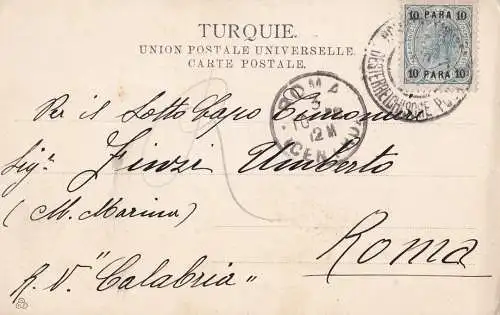 TURQUIE.
UNION POSTALE UNIVERSELLE.
CARTE POSTALE.
10 PARA 10
10 PARA 10
OESTERREICHISCHE
ROMA
3
10
12 M
Per il Sotto Capo Timoniere
Sigr. Finzi Umberto
(M. Marina) Roma
R. V. "Calabria"